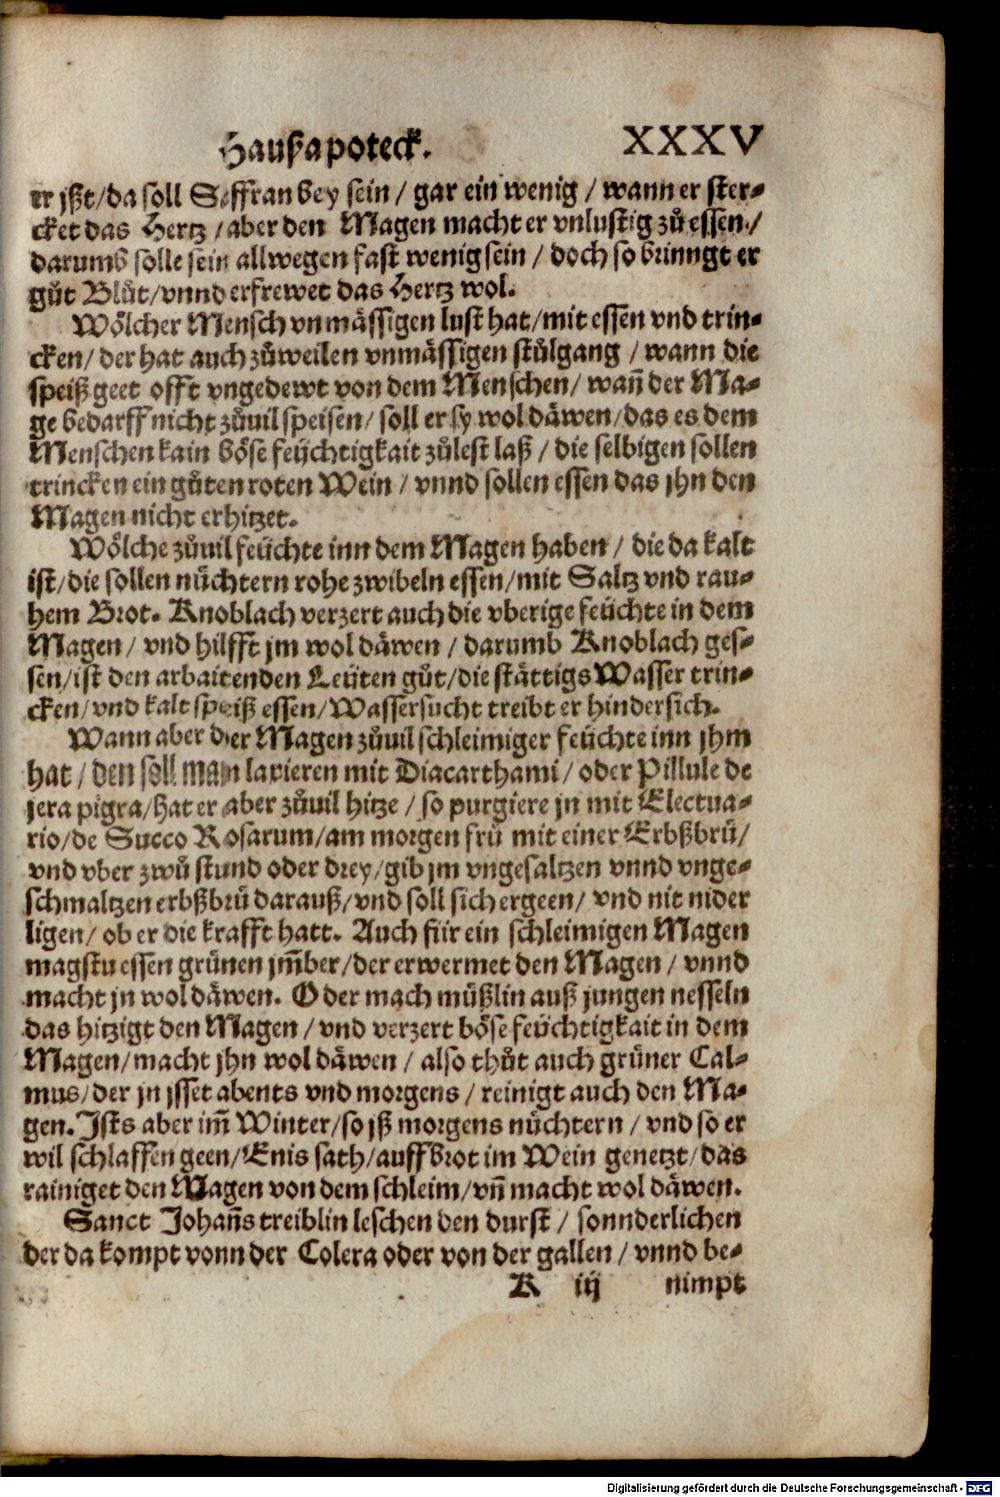 Haußapoteck. XXXV
er jßt/da soll Saffran bey sein / gar ein wenig / wann er ster-
cket das Hertz / aber den Magen macht er vnlustig zů essen /
darumb solle sein allwegen fast wenig sein / doch so brinngt er
gůt Blůt/vnnd erfrewet das Hertz wol.
Wölcher Mensch vnmässigen lust hat/mit essen vnd trin-
cken/ der hat auch zůweilen vnmässigen stůlgang / wann die
speiß geet offt vngedewt von dem Menschen/ wañ der Ma-
ge bedarff nicht zůuil speisen/ soll er sy wol däwen/das es dem
Menschen kain böse feüchtigkait zůlest laß / die selbigen sollen
trincken ein gůten roten Wein / vnnd sollen essen das jhn den
Magen nicht erhitzet.
Wölche zůuil feüchte inn dem Magen haben / die da kalt
ist/die sollen nüchtern rohe zwibeln essen/mit Saltz vnd rau-
hem Brot. Knoblach verzert auch die vberige feüchte in dem
Magen/ vnd hilfft jm wol däwen / darumb Knoblach ges-
sen/ist den arbaitenden Leüten gůt/die stättigs Wasser trin-
cken/vnd kalt speiß essen/Wassersucht treibt er hindersich.
Wann aber der Magen zůuil schleimiger feüchte inn jhm
hat / den soll man laxieren mit Diacarthami / oder Pillule de
jera pigra/hat er aber zůuil hitze / so purgiere jn mit Electua-
rio/de Succo Rosarum/am morgen frü mit einer Erbßbrü/
vnd vber zwů stund oder drey/gib jm vngesaltzen vnnd vnge-
schmaltzen erbßbrü darauß/vnd soll sich ergeen/ vnd nit nider
ligen/ ob er die krafft hatt. Auch für ein schleimigen Magen
magstu essen grünen jm̃ber/der erwermet den Magen / vnnd
macht jn wol däwen. Oder mach müßlin auß jungen nesseln
das hitzigt den Magen / vnd verzert böse feüchtigkait in dem
Magen/macht jhn wol däwen / also thůt auch grüner Cal-
mus/der jn jsset abents vnd morgens / reinigt auch den Ma-
gen. Ists aber im̃ Winter/so jß morgens nüchtern / vnd so er
wil schlaffen geen/Enis sath/auff brot im Wein genetzt/das
rainiget den Magen von dem schleim/vñ macht wol däwen.
Sanct Johañs treiblin leschen den durst / sonnderlichen
der da kompt vonn der Colera oder von der gallen / vnnd be-
K iij nimpt
Digitalisierung gefördert durch die Deutsche Forschungsgemeinschaft - DFG